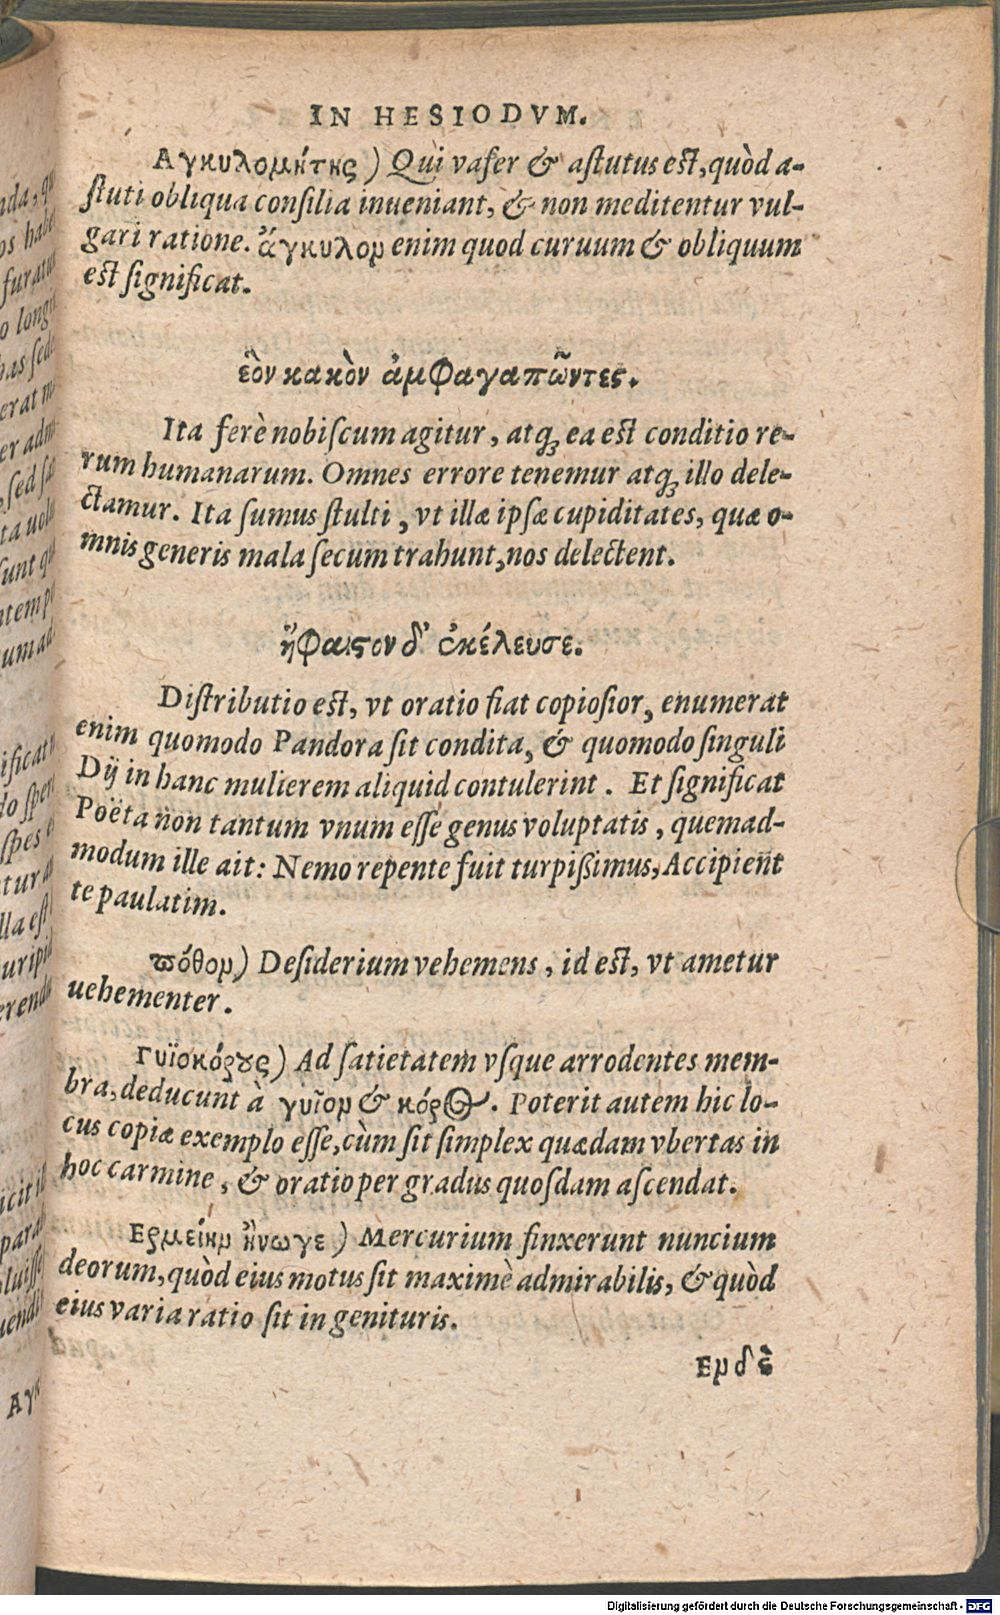 IN HESIODVM.
Αγκυλομήτης) Qui vafer & aſtutus est, quòd a-
ſtuti obliqua conſilia inueniant, & non meditentur vul-
gari ratione. ἄγκυλον enim quod curuum & obliquum
est ſignificat.
ἑὸν κακὸν ἀμφαγαπῶντες.
Ita ferè nobiſcum agitur, atq; ea est conditio re-
rum humanarum. Omnes errore tenemur atq; illo dele-
ctamur. Ita ſumus ſtulti, vt illæ ipſæ cupiditates, quæ o-
mnis generis mala ſecum trahunt, nos delectent.
ἥφαιςον δ' ἐκέλευσε.
Diſtributio est, vt oratio fiat copioſior, enumerat
enim quomodo Pandora ſit condita, & quomodo ſinguli
Dij in hanc mulierem aliquid contulerint. Et ſignificat
Poëta non tantum vnum eſſe genus voluptatis, quemad-
modum ille ait: Nemo repente fuit turpißimus, Accipient
te paulatim.
πόθον) Deſiderium vehemens, id est, vt ametur
uehementer.
Γυϊοκόρȣς) Ad ſatietatem vſque arrodentes mem-
bra, deducunt à γυῖον & κόρος. Poterit autem hic lo-
cus copiæ exemplo eſſe, cùm ſit ſimplex quædam vbertas in
hoc carmine, & oratio per gradus quoſdam aſcendat.
Ερμείην ἤνωγε) Mercurium finxerunt nuncium
deorum, quòd eius motus ſit maximè admirabilis, & quòd
eius varia ratio ſit in genituris.
Εν δὲ
Digitalisierung gefördert durch die Deutsche Forschungsgemeinschaft - DFG